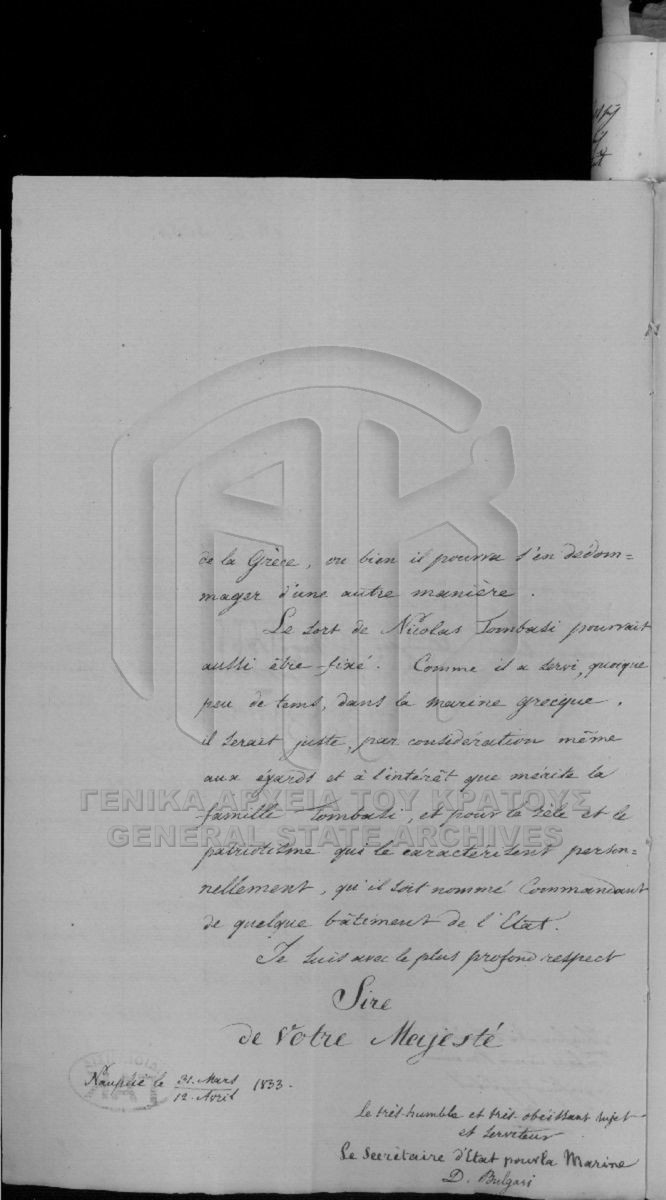 de la Grèce, ou bien il pourra s'en dédom=
mager d'une autre manière.
Le sort de Nicolas Tombasi pourrait
aussi être fixé. Comme il a servi, quoique
peu de tems, dans la marine grecque,
il serait juste, par considération même
aux égards et à l'intérêt que mérite la
famille Tombasi, et pour le zèle et le
patriotisme qui le caractérisent person=
nellement, qu'il soit nommé Commandant
de quelque bâtiment de l'Etat.
Je suis avec le plus profond respect
Sire
de Votre Majesté
Nauplie le 31. Mars / 12. Avril 1833.
le très-humble et très-obéissant sujet
et serviteur
Le Secrétaire d'Etat pour la Marine
D. Bulgari
ΓΕΝΙΚΑ ΑΡΧΕΙΑ ΤΟΥ ΚΡΑΤΟΥΣ
GENERAL STATE ARCHIVES